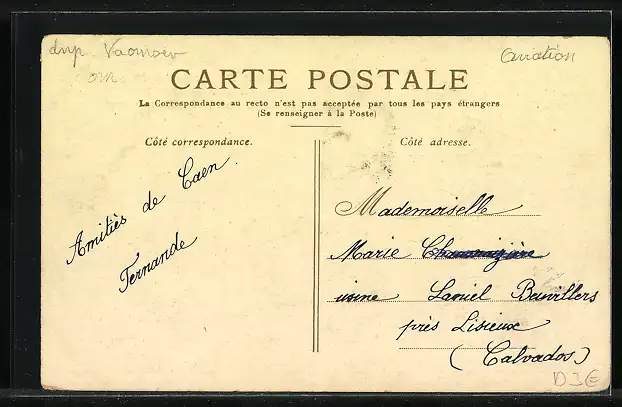 Aviation
CARTE POSTALE
La Correspondance au recto n'est pas acceptée par tous les pays étrangers
(Se renseigner à la Poste)
Côté correspondance.
Côté adresse.
Amitiès de Caen
Fernande
Mademoiselle
Marie
usine Laniel Beuvillers
près Lisieux
(Calvados)